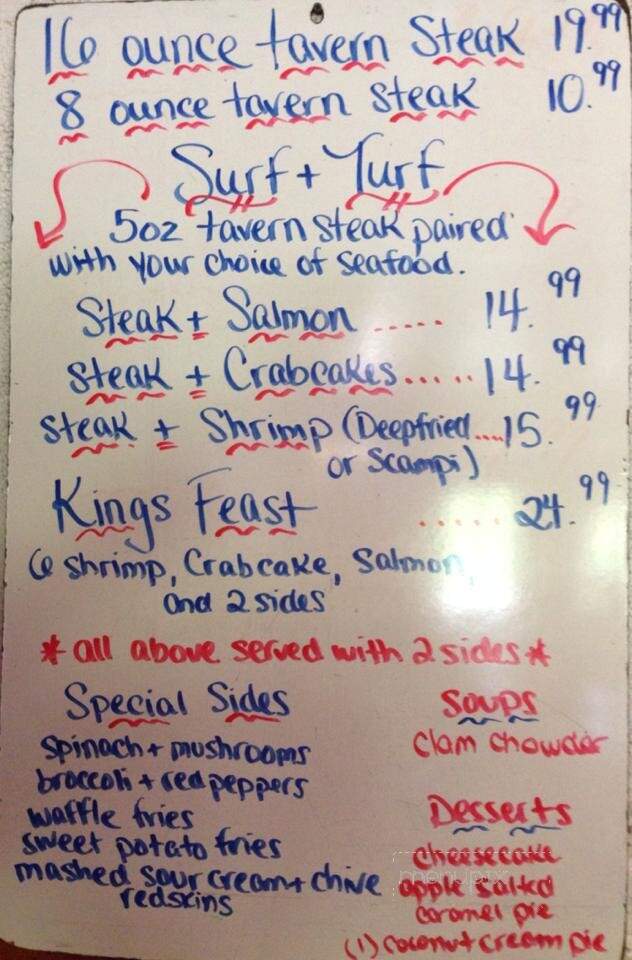 16 ounce tavern Steak 19.99
8 ounce tavern steak 10.99
Surf + Turf
5oz tavern steak paired
with your choice of seafood.
Steak + Salmon ..... 14.99
steak + Crabcakes..... 14.99
steak + Shrimp (Deepfried.... 15.99
or Scampi)
Kings Feast ..... 24.99
6 shrimp, Crabcake, Salmon,
and 2 sides
* all above served with 2 sides *
Special Sides
spinach + mushrooms
broccoli + red peppers
waffle fries
sweet potato fries
mashed sour cream + chive
redskins
Soups
Clam chowder
Desserts
cheesecake
apple salted
caramel pie
(1) coconut cream pie
menupix